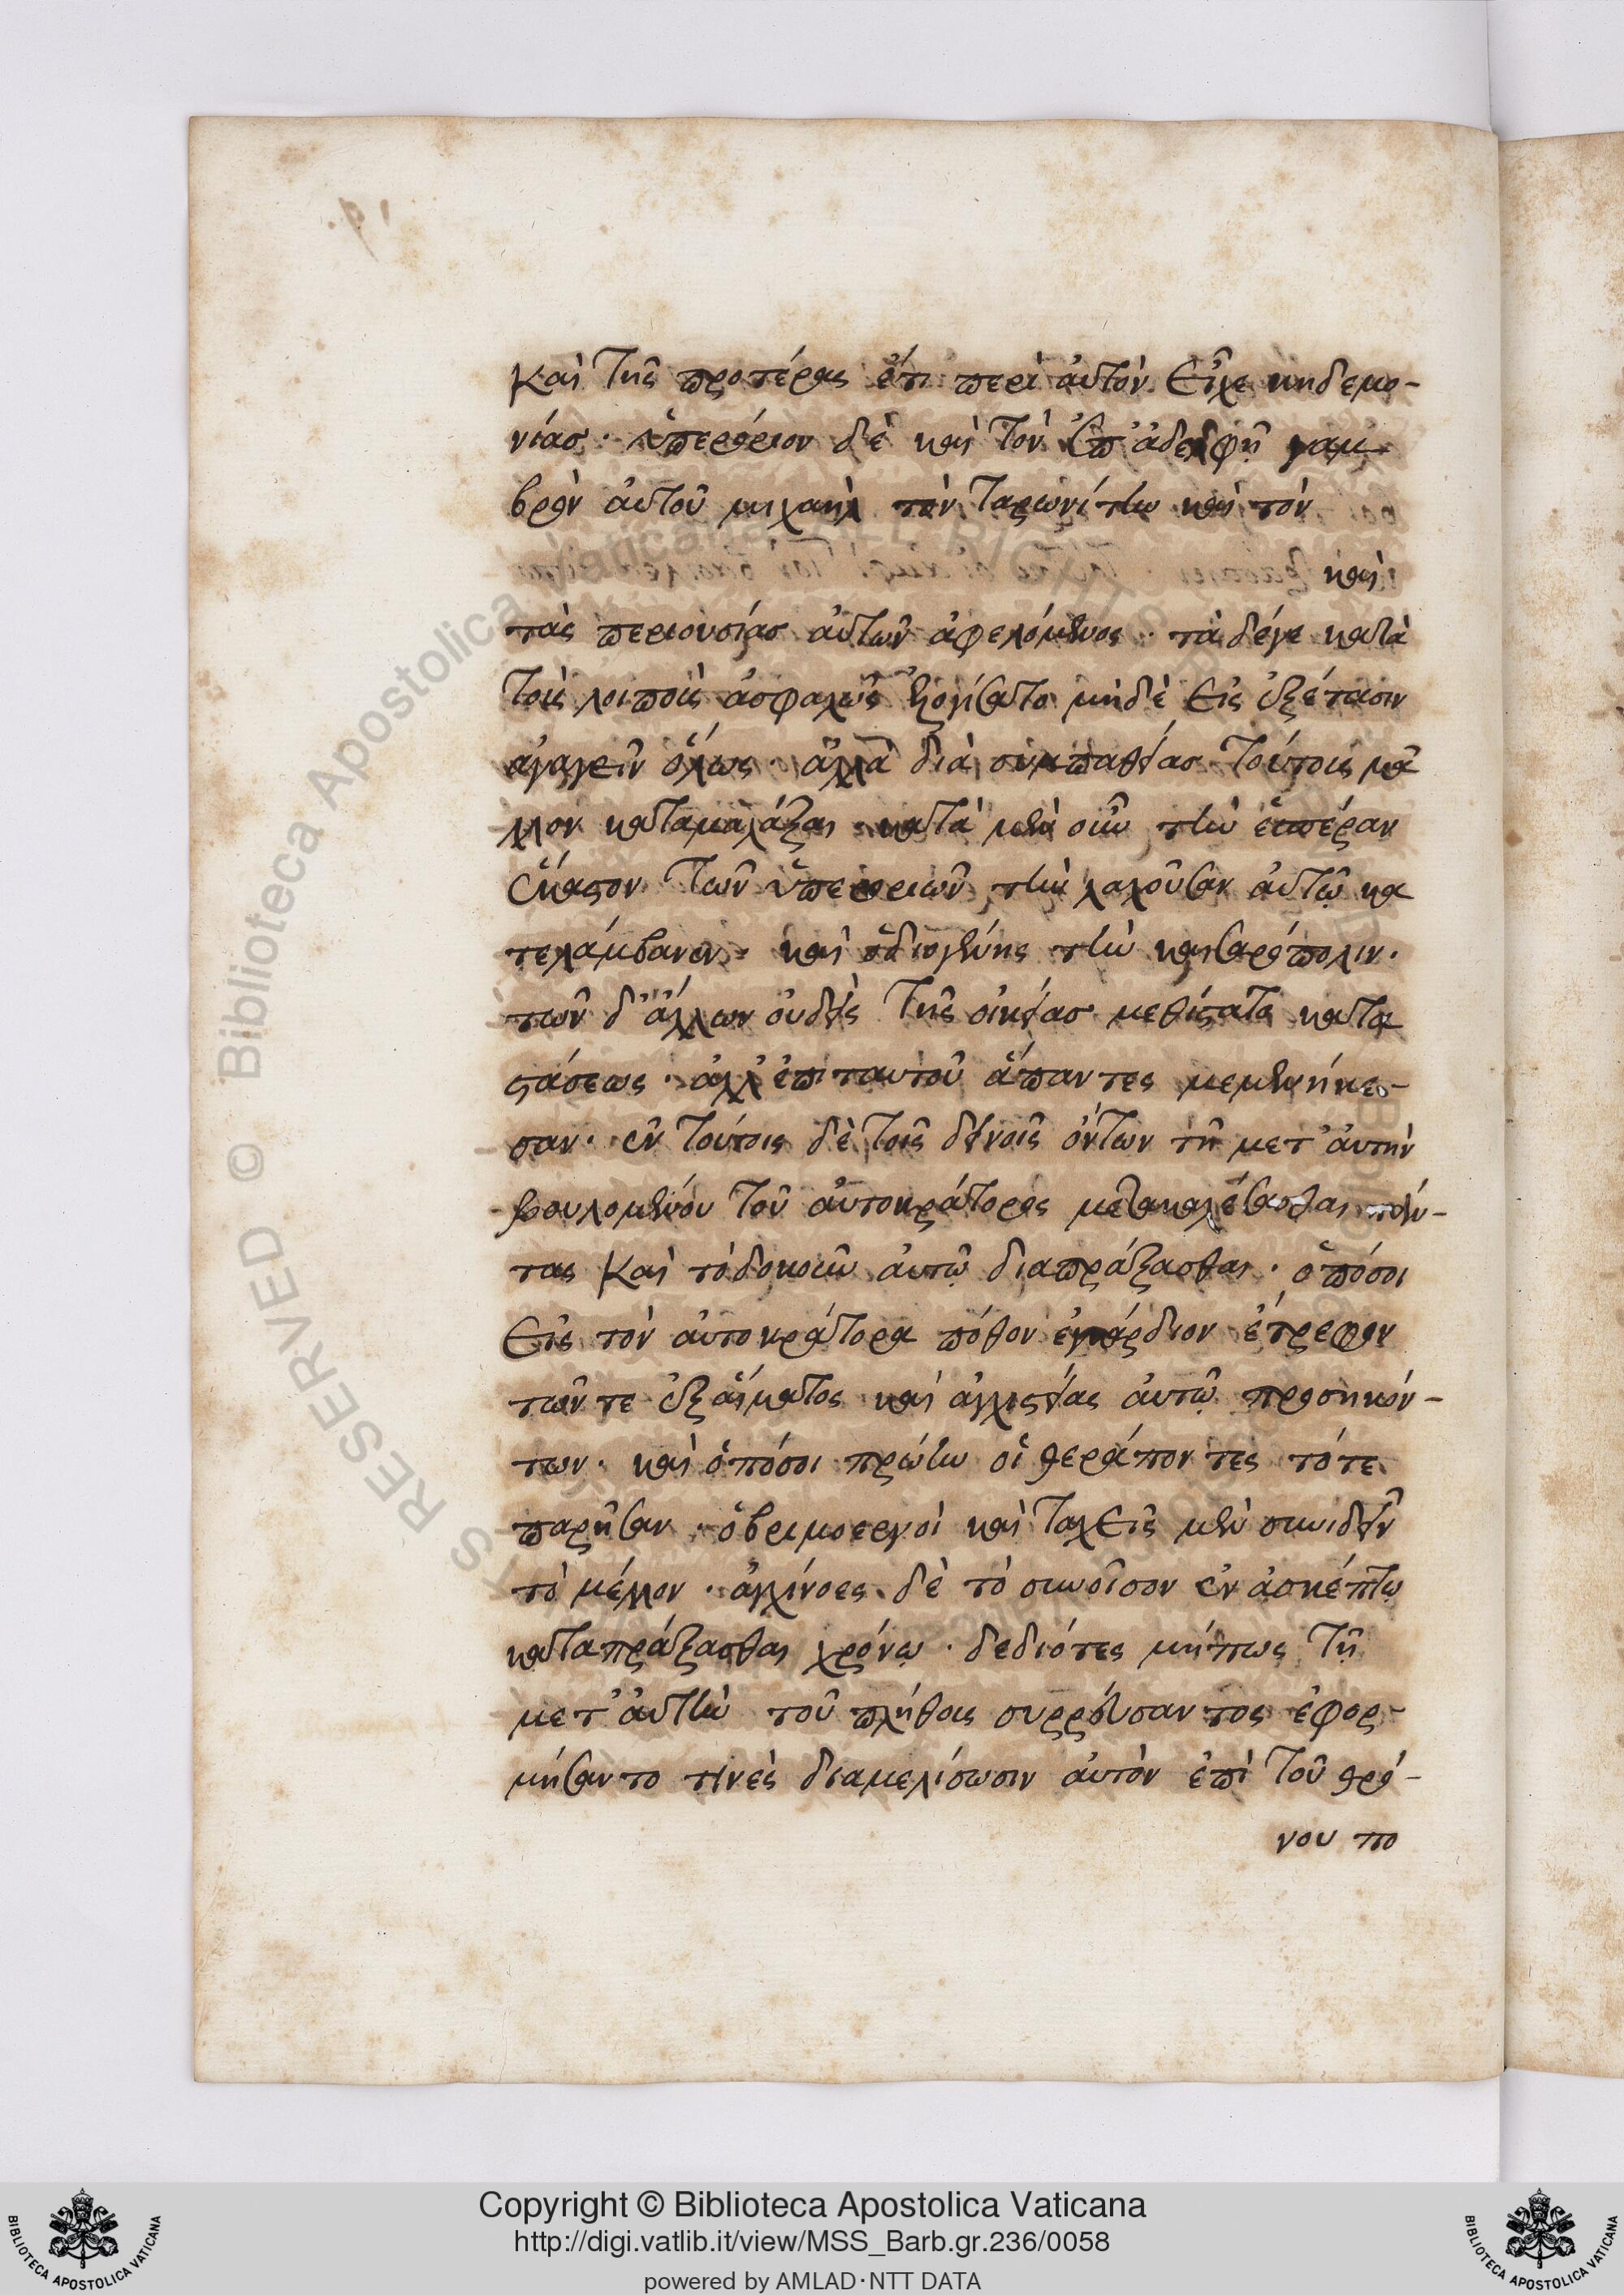 Καὶ τῆς προτέρας ἔτι περὶ αὐτὸν εἶχε κηδεμο-
νίας· ὑπερόριον δὲ καὶ τὸν ἐπ' ἀδελφῇ γαμ
βρὸν αὐτοῦ μιχαὴλ τὸν Ταρωνίτην καὶ τὸν
καὶ
τὰς περιουσίας αὐτῶν ἀφελόμενος· τὰ δέγε κατὰ
τοὺς λοιποὺς ἀσφαλῶς ἐλογίσατο μηδὲ εἰς ἐξέτασιν
ἀγαγεῖν ὅλως· ἀλλὰ διὰ συμπαθείας τούτους μᾶ
λλον καταμαλάξαι· κατὰ μὲν οὖν τὴν ἑσπέραν
ἕκαστον τῶν ὑπεροριῶν τὴν λαχοῦσαν αὐτῷ κα
τελάμβανεν· καὶ ὁ διογένης τὴν καισαρόπολιν·
τῶν δ' ἄλλων οὐδεὶς τῆς οἰκείας μεθίστατο κατα
στάσεως· ἀλλ' ἐπιταυτοῦ ἅπαντες μεμενήκε-
σαν· ἐν τούτοις δὲ τοῖς δεινοῖς ὄντων τῇ μετ' αὐτὴν
βουλομένου τοῦ αὐτοκράτορος μετακαλέσασθαι πάν-
τας Καὶ τὸ δοκοῦν αὐτῷ διαπράξασθαι· ὁπόσοι
εἰς τὸν αὐτοκράτορα πόθον ἐγκάρδιον ἔτρεφον
τῶν τε ἐξ αἵματος καὶ ἀγχιστείας αὐτῷ προσηκόν-
των· καὶ ὁπόσοι πρώτω οἱ θεράποντες τότε
παρῆσαν· ὀβριμοεργοὶ καὶ ταχεῖς μὲν συνιδεῖν
τὸ μέλλον· ἀγχίνοες δὲ τὸ συνοῖσον ἐν ἀσκέπτῳ
καταπράξασθαι χρόνῳ· δεδιότες μήπως τῇ
μετ' αὐτὴν τοῦ πλήθους συρρεύσαντος ἐφορ-
μήσαντο τινὲς διαμελίσωσιν αὐτὸν ἐπὶ τοῦ θρό-
νου πο
Copyright © Biblioteca Apostolica Vaticana
http://digi.vatlib.it/view/MSS_Barb.gr.236/0058
powered by AMLAD·NTT DATA